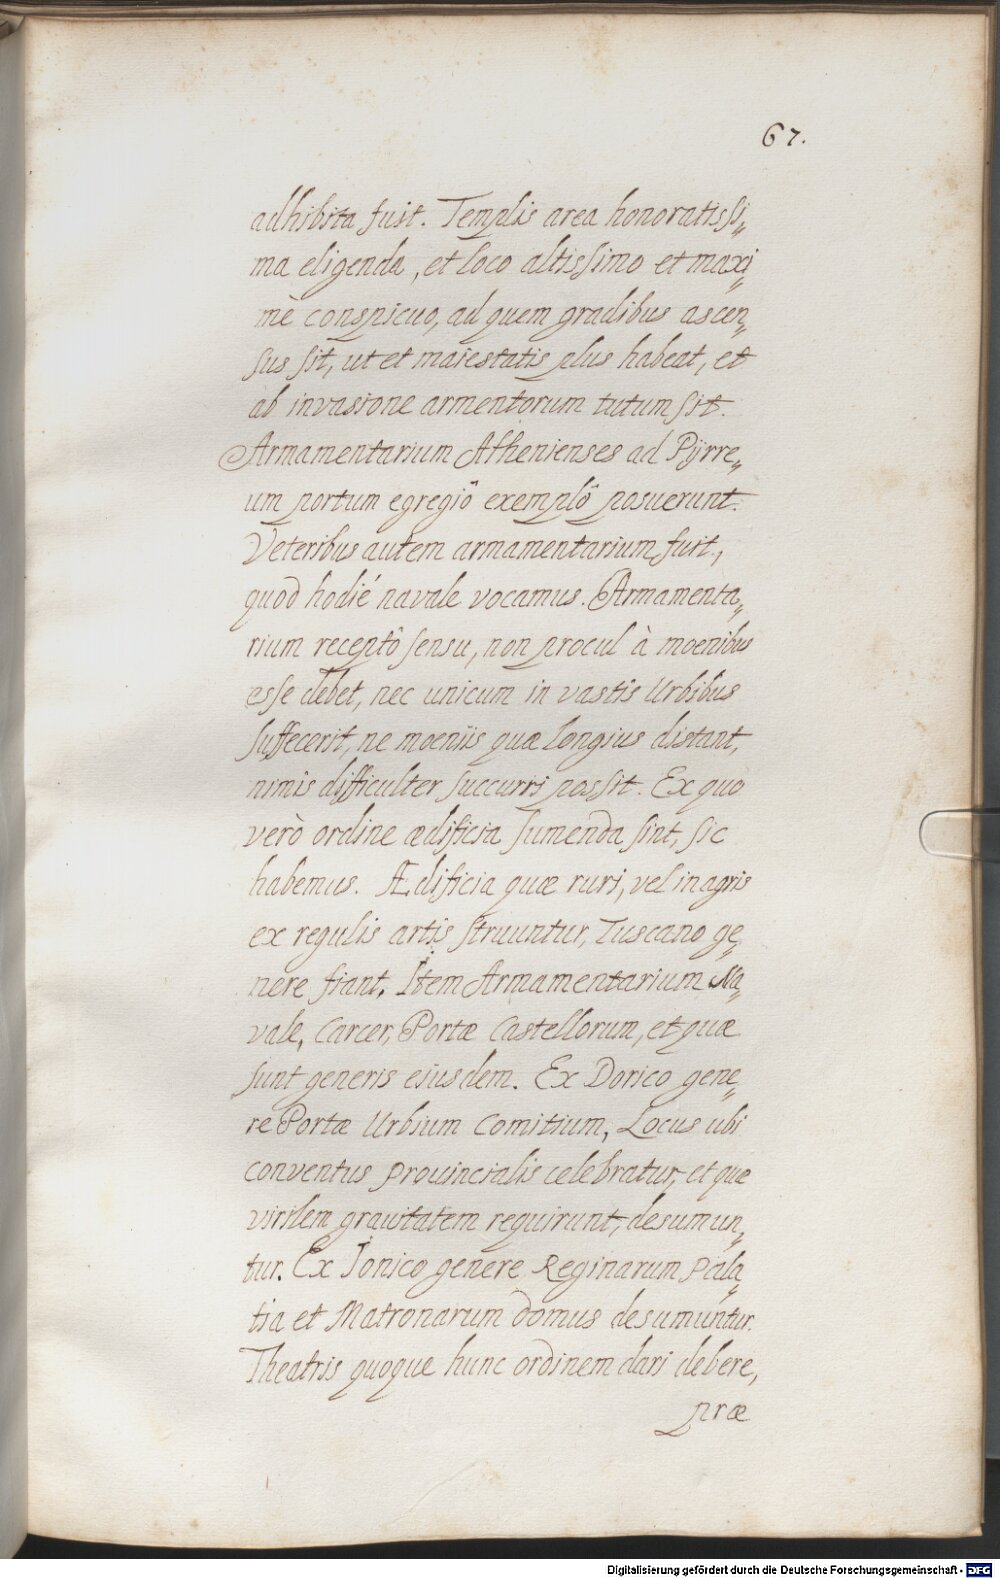 67.
adhibita fuit. Templis area honoratissi„
ma eligenda, et loco altissimo et maxi„
mè conspicuo, ad quem gradibus ascen„
sus sit, ut et maiestatis plus habeat, et
ab invasione armentorum tutum sit.
Armamentarium Athenienses ad Pyrre„
um portum egregiô exemplô posuerunt.
Veteribus autem armamentarium fuit,
quod hodié navale vocamus. Armamenta„
rium receptô sensu, non procul à moenibus
esse debet, nec unicum in vastis Urbibus
suffecerit, ne moeniis quæ longius distant,
nimis difficulter succurri possit. Ex quo
verò ordine ædificia sumenda sint, sic
habemus. Ædificia quæ ruri, vel in agris
ex regulis artis struuntur, Tuscano ge„
nere fiant. Item Armamentarium Na„
vale, Carcer, Portæ Castellorum, et quæ
sunt generis eiusdem. Ex Dorico gene„
re Portæ Urbium Comitium, Locus ubi
conventus Provincialis celebratur, et quæ
virilem gravitatem requirunt, desumun„
tur. Ex Jonico genere Reginarum Pala„
tia et Matronarum domus desumuntur.
Theatris quoque hunc ordinem dari debere,
præ
Digitalisierung gefördert durch die Deutsche Forschungsgemeinschaft - DFG